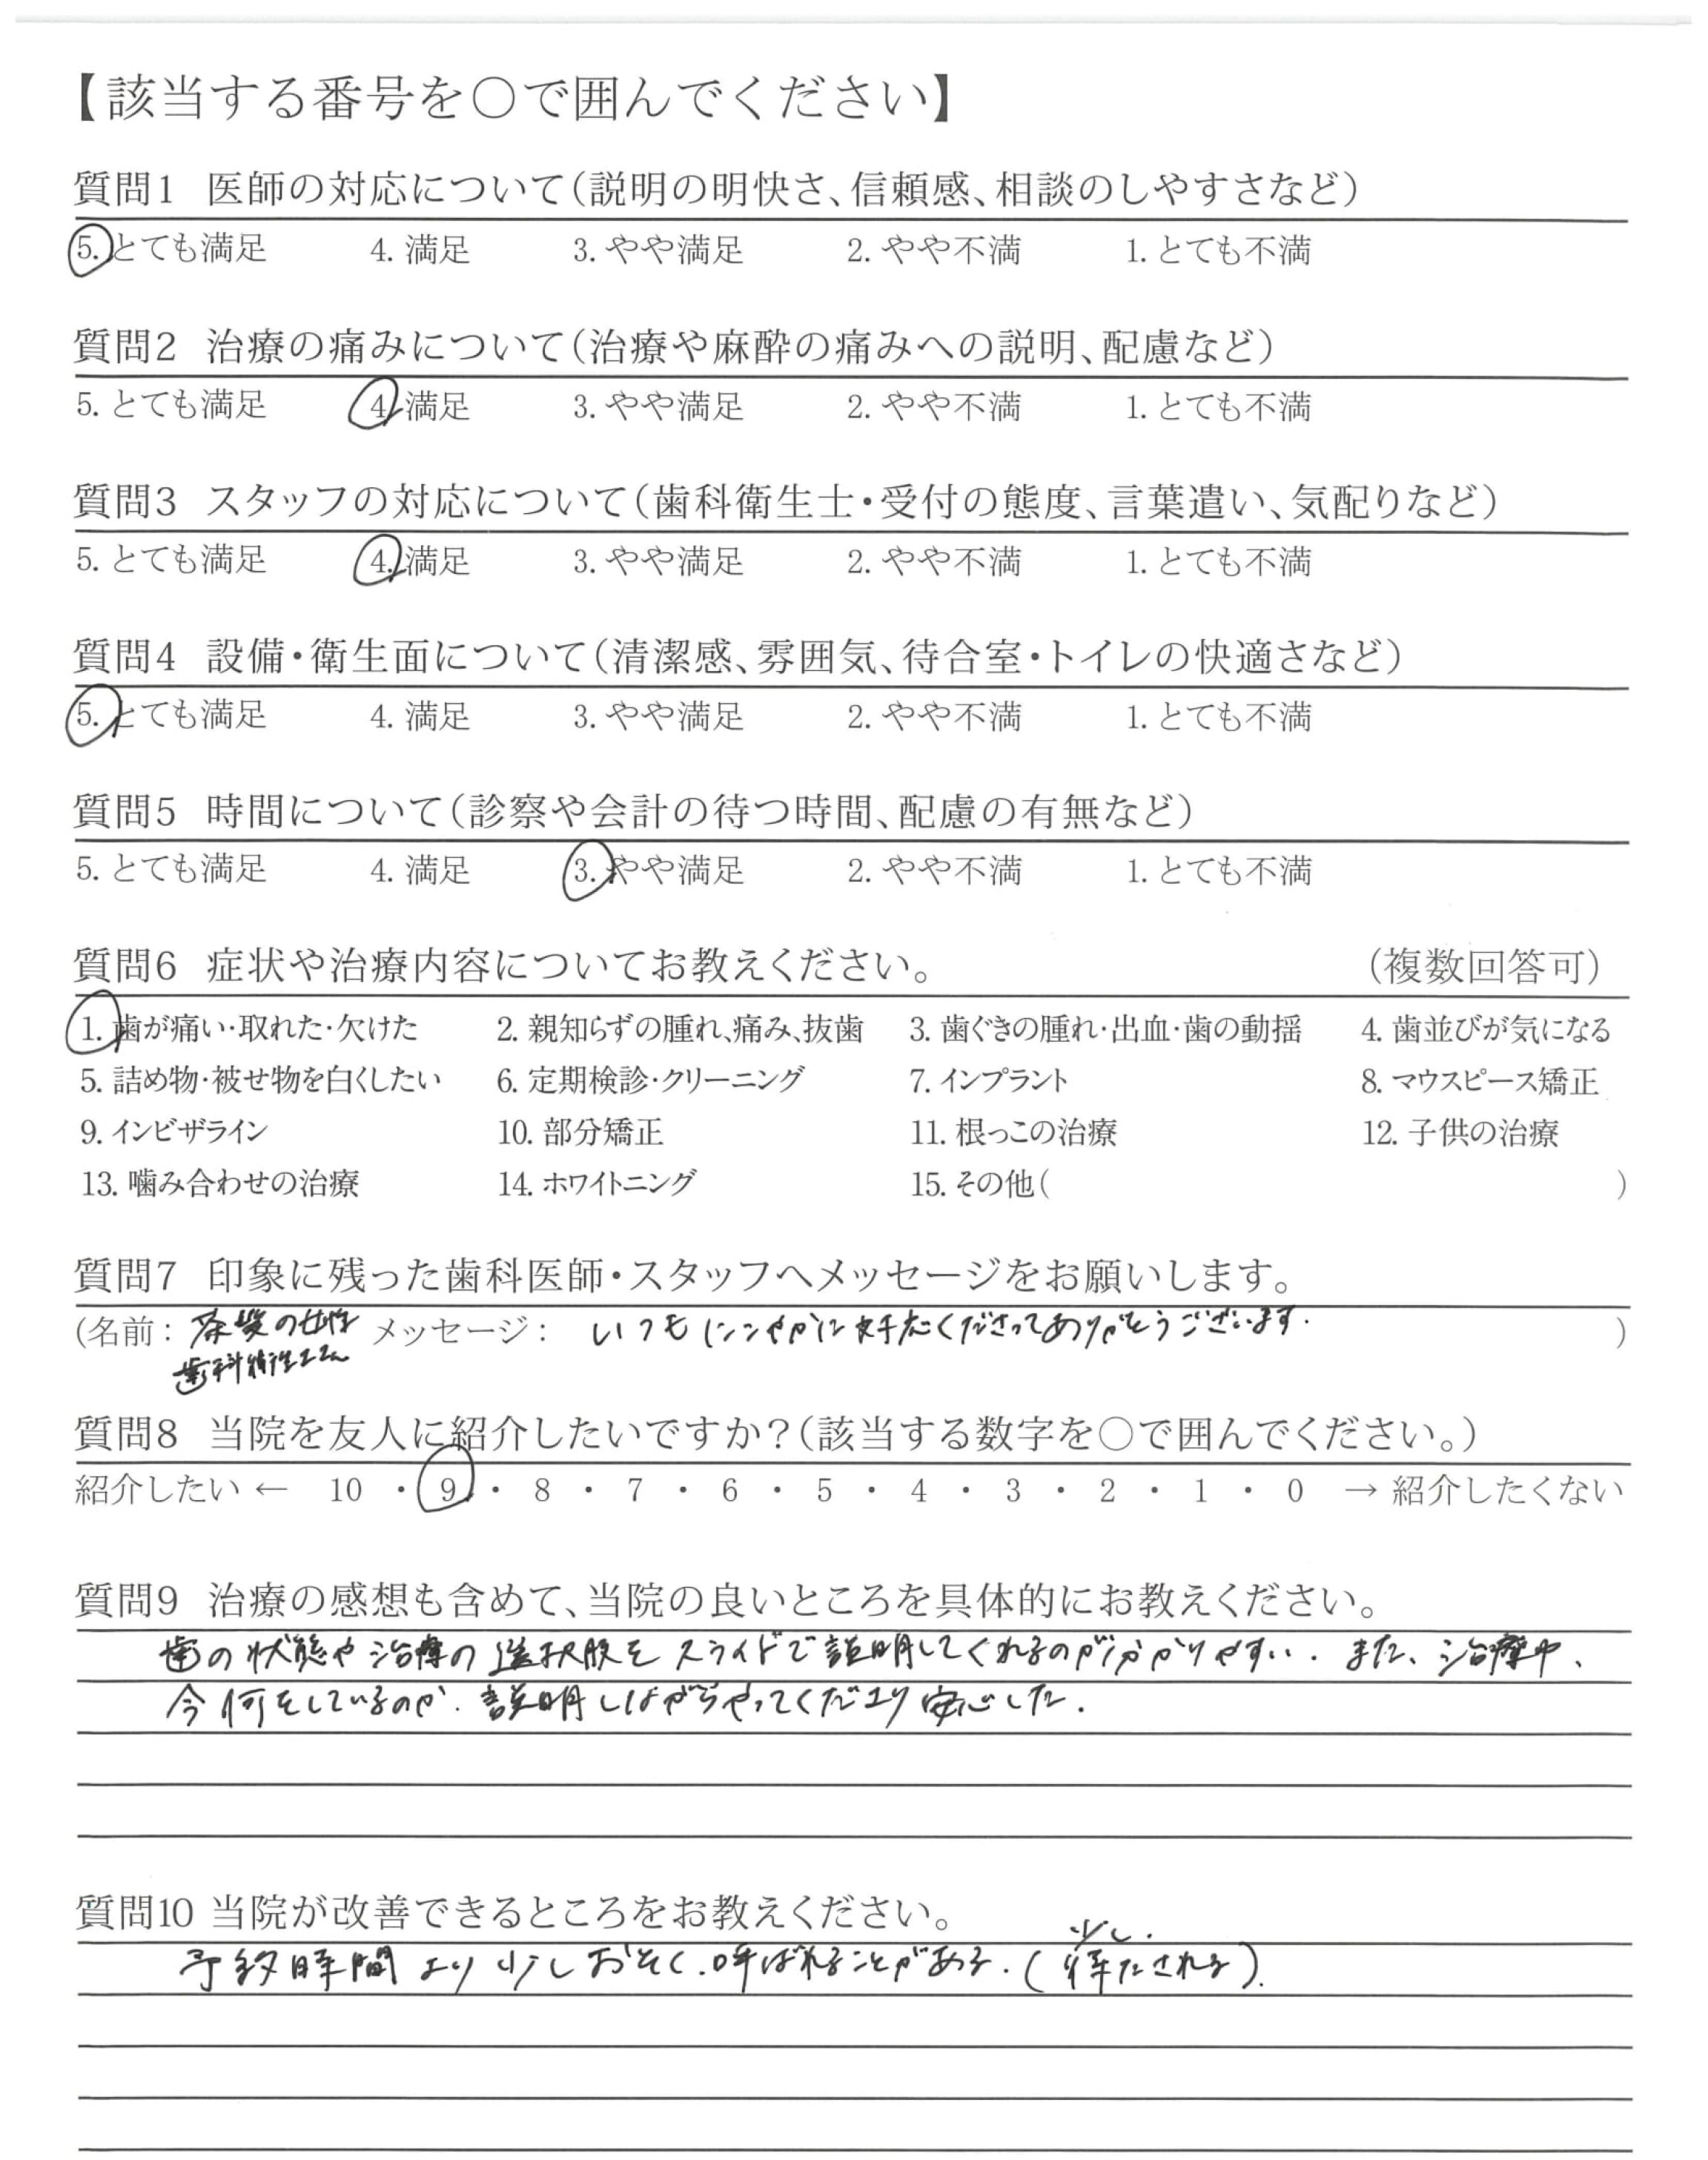 【該当する番号を〇で囲んでください】
質問1 医師の対応について（説明の明快さ、信頼感、相談のしやすさなど）
5. とても満足 4. 満足 3. やや満足 2. やや不満 1. とても不満
質問2 治療の痛みについて（治療や麻酔の痛みへの説明、配慮など）
5. とても満足 4. 満足 3. やや満足 2. やや不満 1. とても不満
質問3 スタッフの対応について（歯科衛生士・受付の態度、言葉遣い、気配りなど）
5. とても満足 4. 満足 3. やや満足 2. やや不満 1. とても不満
質問4 設備・衛生面について（清潔感、雰囲気、待合室・トイレの快適さなど）
5. とても満足 4. 満足 3. やや満足 2. やや不満 1. とても不満
質問5 時間について（診察や会計の待つ時間、配慮の有無など）
5. とても満足 4. 満足 3. やや満足 2. やや不満 1. とても不満
質問6 症状や治療内容についてお教えください。 （複数回答可）
1. 歯が痛い・取れた・欠けた 2. 親知らずの腫れ、痛み、抜歯 3. 歯ぐきの腫れ・出血・歯の動揺 4. 歯並びが気になる
5. 詰め物・被せ物を白くしたい 6. 定期検診・クリーニング 7. インプラント 8. マウスピース矯正
9. インビザライン 10. 部分矯正 11. 根っこの治療 12. 子供の治療
13. 噛み合わせの治療 14. ホワイトニング 15. その他（ ）
質問7 印象に残った歯科医師・スタッフへメッセージをお願いします。
（名前： 茶髪の女性 メッセージ： いつもにこやかに対応くださってありがとうございます. ）
歯科衛生士さん
質問8 当院を友人に紹介したいですか？（該当する数字を〇で囲んでください。）
紹介したい ← 10 ・ 9 ・ 8 ・ 7 ・ 6 ・ 5 ・ 4 ・ 3 ・ 2 ・ 1 ・ 0 → 紹介したくない
質問9 治療の感想も含めて、当院の良いところを具体的にお教えください。
歯の状態や治療の選択肢をスライドで説明してくれるのが分かりやすい. また、治療中、
今何をしているのか. 説明しながらやってくださり安心した.
質問10 当院が改善できるところをお教えください。
予約時間より少しおそく.呼ばれることがある. (少し.待たされる).